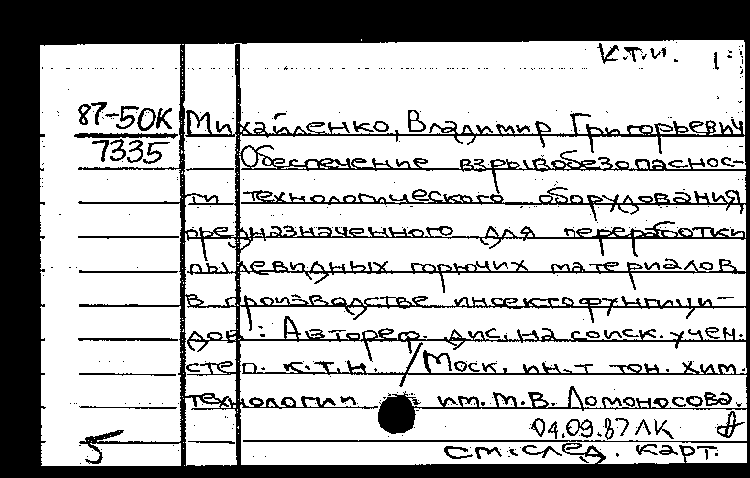 К.Т.И. 1:
87-50К Михайленко, Владимир Григорьевич
7335 Обеспечение взрывобезопаснос-
ти технологического оборудования,
предназначенного для переработки
пылевидных горючих материалов
в производстве инсектофунгици-
дов: Автореф. дис. на соиск. учен.
степ. к.т.н. / Моск. ин-т тон. хим.
технологии им. М.В. Ломоносова.
04.09.87 ЛК
5 см. след. карт.